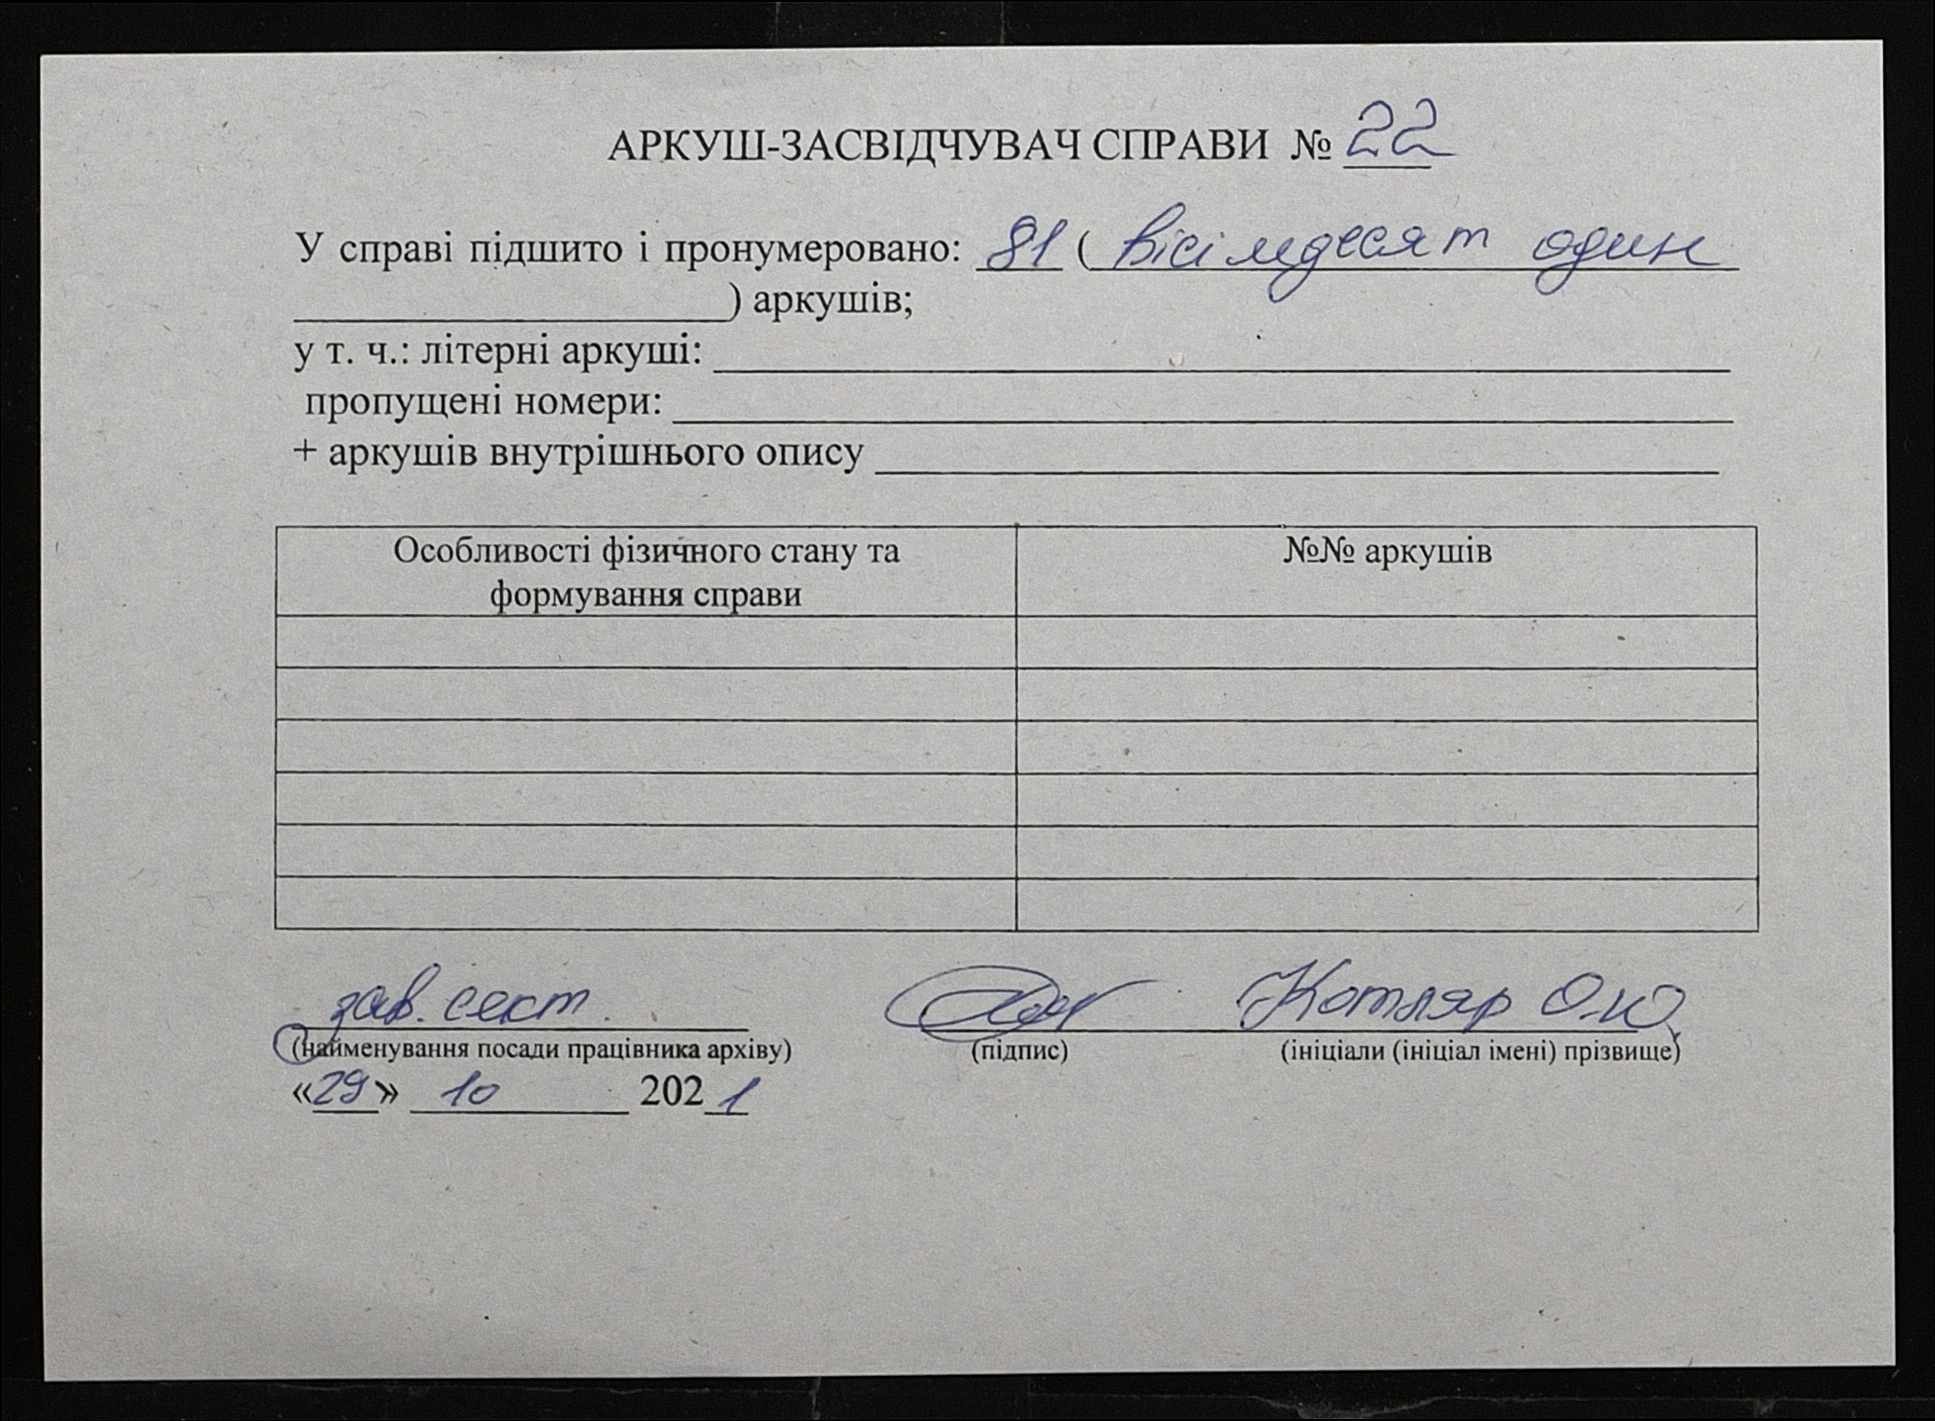 АРКУШ-ЗАСВІДЧУВАЧ СПРАВИ № 22
У справі підшито і пронумеровано: 81 ( вісімдесят один
) аркушів;
у т. ч.: літерні аркуші:
пропущені номери:
+ аркушів внутрішнього опису
Особливості фізичного стану та формування справи
№№ аркушів
зав. сект. Котляр О.Ю.
(найменування посади працівника архіву) (підпис) (ініціали (ініціал імені) прізвище)
«29» 10 2021